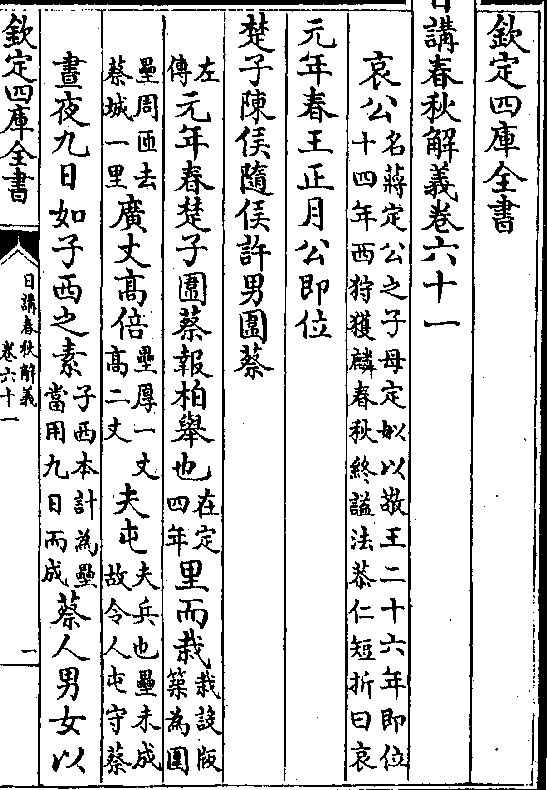 欽定四庫全書
日講春秋解義卷六十一
哀公名蔣定公之子母定姒以敬王二十六年即位十四年西狩獲麟春秋終謚法恭仁短折曰哀
元年春王正月公即位
楚子陳侯隨侯許男圍蔡
左傳元年春楚子圍蔡報柏舉也在定四年里而栽栽設版築為圍
壘周匝去蔡城一里廣丈高倍壘厚一丈高二丈夫屯夫兵也壘未成故令人屯守蔡
晝夜九日如子西之素子西本計為壘當用九日而成蔡人男女以
欽定四庫全書
日講春秋解義
卷六十一
一